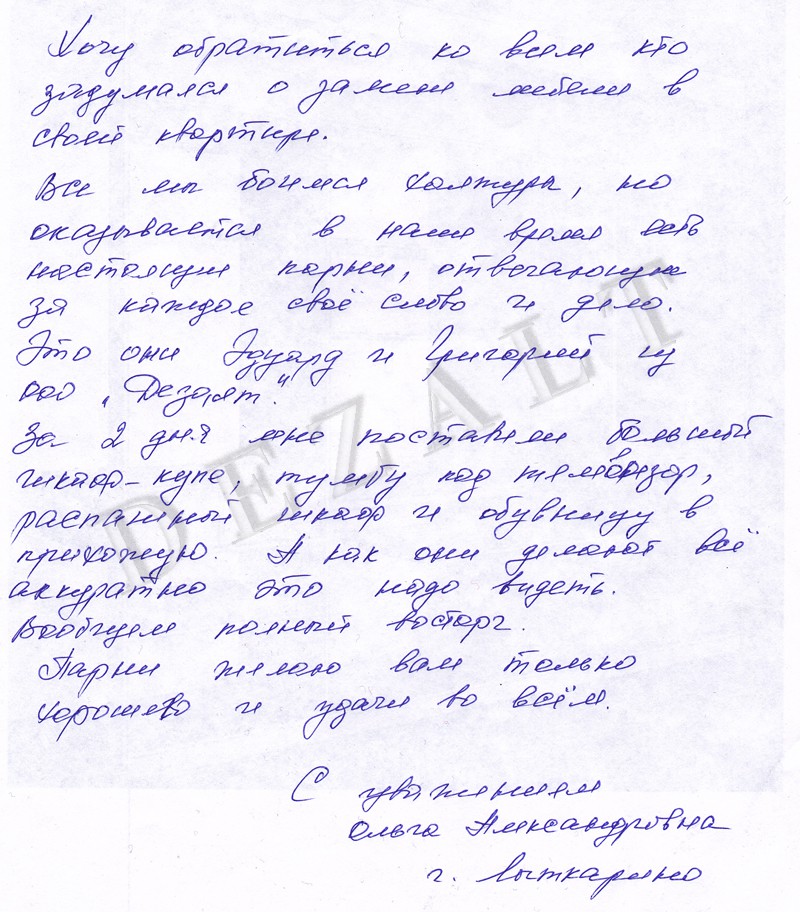 Хочу обратиться ко всем кто
задумался о замене мебели в
своей квартире.
Все мы боимся халтуры, но
оказывается в наше время есть
настоящие парни, отвечающие
за каждое своё слово и дело.
Это они Эдуард и Григорий из
ооо „Дезалт".
За 2 дня мне поставили большой
шкаф-купе, тумбу под телевизор,
распашной шкаф и обувницу в
прихожую. А как они делают всё
аккуратно это надо видеть.
Вообщем полный восторг.
Парни желаю вам только
хорошего и удачи во всём.
С уважением
Ольга Александровна
г. Лыткарино
DEZALT